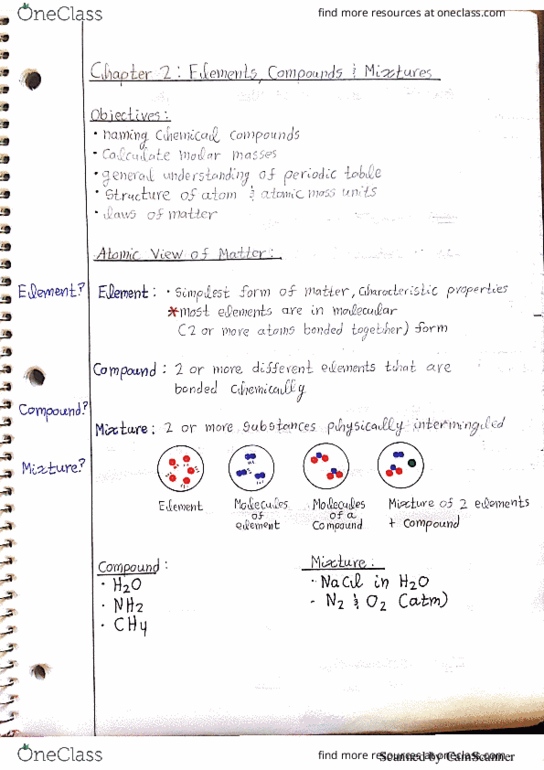 OneClass
find more resources at oneclass.com
Chapter 2: Elements, Compounds & Mixtures
Objectives:
· naming chemical compounds
· Calculate molar masses
· general understanding of periodic table
· Structure of atom & atomic mass units
· laws of matter
Atomic View of Matter:
Element?
Element: · Simplest form of matter, characteristic properties
*most elements are in molecular
(2 or more atoms bonded together) form
Compound: 2 or more different elements that are
bonded chemically
Compound?
Mixture: 2 or more substances physically intermingled
Mixture?
Element
Molecules of element
Molecules of a Compound
Mixture of 2 elements + compound
Compound:
· H2O
· NH2
· CH4
Mixture:
· NaCl in H2O
· N2 & O2 (atm)
OneClass
find more resources at oneclass.com
Scanned by CamScanner